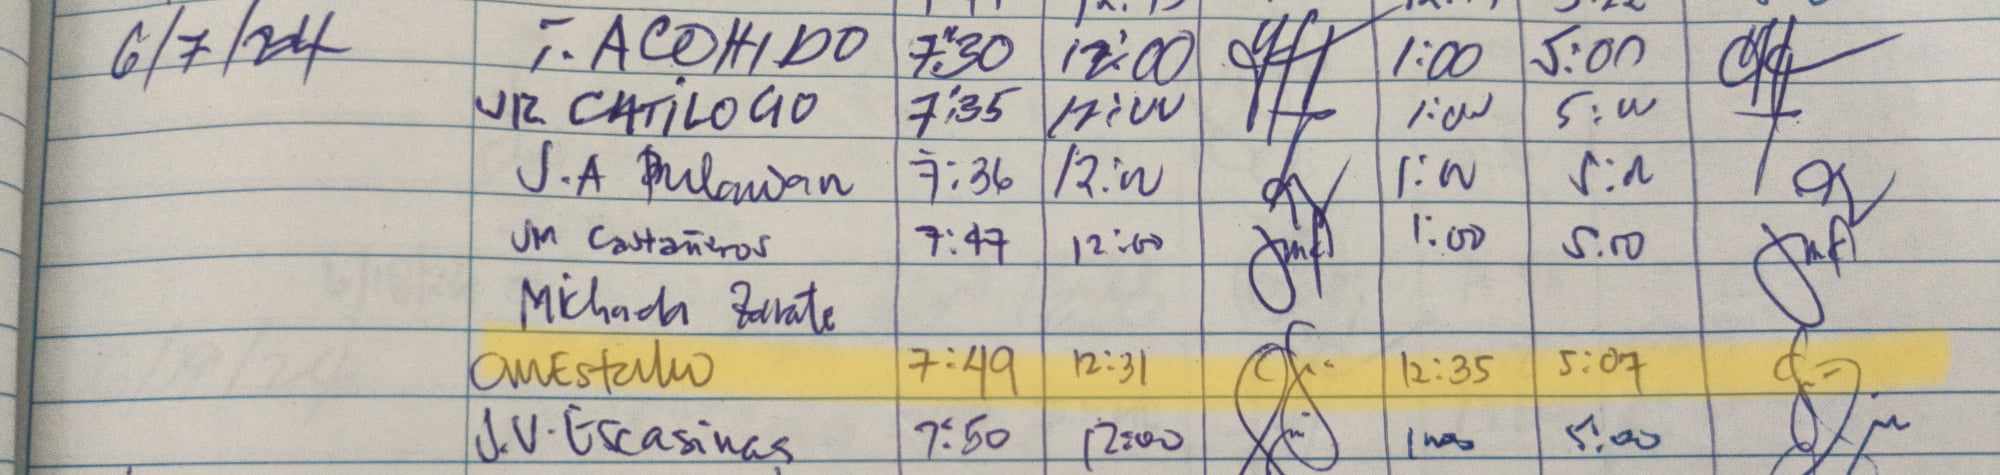 6/7/24 T. ACOHIDO 7:30 12:00 1:00 5:00
JR CATILOGO 7:35 12:00 1:00 5:00
J.A Bulawan 7:36 12:00 1:00 5:00
JM Castañeros 7:47 12:00 1:00 5:00
Zarate
7:49 12:31 12:35 5:07
J.V. Escasinas 7:50 12:00 1:00 5:00